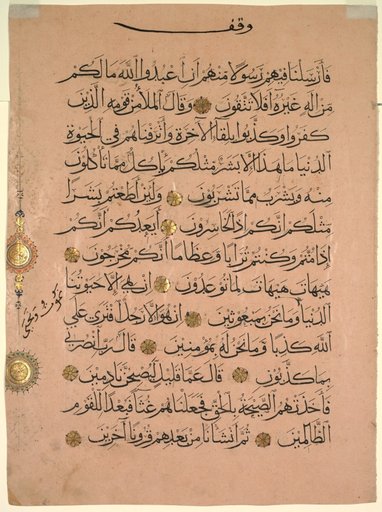 وقف
فأرسلنا فيهم رسولا منهم أن اعبدوا الله ما لكم
من إله غيره أفلا تتقون وقال الملأ من قومه الذين
كفروا وكذبوا بلقاء الآخرة وأترفناهم في الحيوة
الدنيا ما هذا إلا بشر مثلكم يأكل مما تأكلون
منه ويشرب مما تشربون ولئن أطعتم بشرا
مثلكم إنكم إذا لخاسرون أيعدكم أنكم
إذا متم وكنتم ترابا وعظاما أنكم مخرجون
هيهات هيهات لما توعدون إن هي إلا حيوتنا
الدنيا وما نحن بمبعوثين إن هو إلا رجل افترى على
نموت ونحيى
الله كذبا وما نحن له بمؤمنين قال رب انصرني
بما كذبون قال عما قليل ليصبحن نادمين
فأخذتهم الصيحة بالحق فجعلناهم غثاء فبعدا للقوم
الظالمين ثم أنشأنا من بعدهم قرونا آخرين